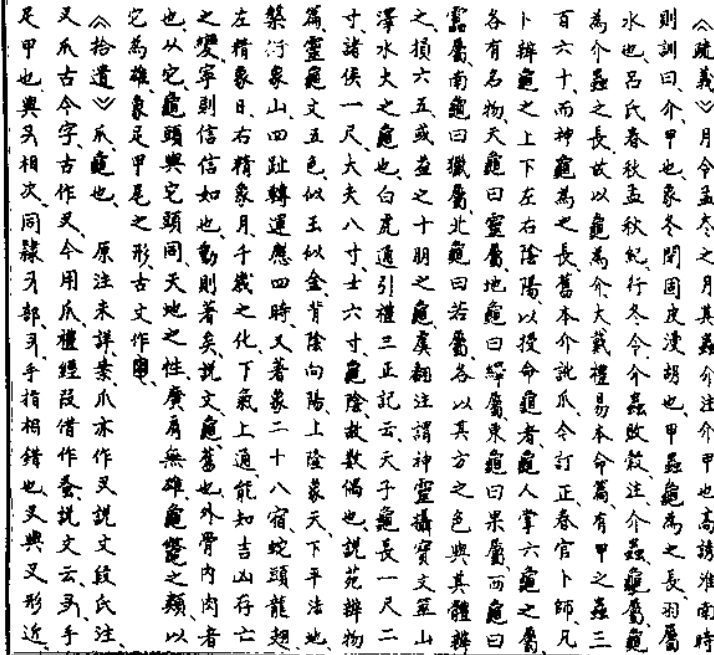 《疏義》月令孟冬之月其蟲介注介甲也高誘淮南時
則訓曰介甲也象冬閉固皮漫胡也甲蟲龜為之長羽屬
水也呂氏春秋孟秋紀行冬令介蟲敗穀注介蟲龜屬龜
為介蟲之長故以龜為介大戴禮易本命篇有甲之蟲三
百六十而神龜為之長舊本介訛爪今訂正春官卜師凡
卜辨龜之上下左右陰陽以授命龜者龜人掌六龜之屬
各有名物天龜曰靈屬地龜曰繹屬東龜曰果屬西龜曰
靁屬南龜曰獵屬北龜曰若屬各以其方之色與其體辨
之損六五或益之十朋之龜虞翻注謂神靈攝寶文筮山
澤水火之龜也白虎通引禮三正記云天子龜長一尺二
寸諸侯一尺大夫八寸士六寸龜陰故數偶也說苑辨物
篇靈龜文五色似玉似金背陰向陽上隆象天下平法地
槃衍象山四趾轉運應四時文著象二十八宿蛇頭龍翅
左精象日右精象月千歲之化下氣上通能知吉凶存亡
之變寧則信信如也動則著矣說文龜舊也外骨內肉者
也从它龜頭與它頭同天地之性廣肩無雄龜鱉之類以
它為雄象足甲尾之形古文作
《拾遺》爪龜也 原注未詳案爪亦作叉說文段氏注
叉爪古今字古作叉今用爪禮經段借作蚤說文云叉手
足甲也與叉相次同隸又部叉手指相錯也叉與叉形近